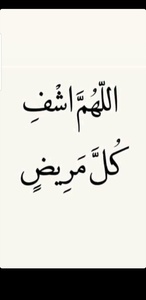 اللَّهُمَّ اشْفِ
كُلَّ مَرِيضٍ